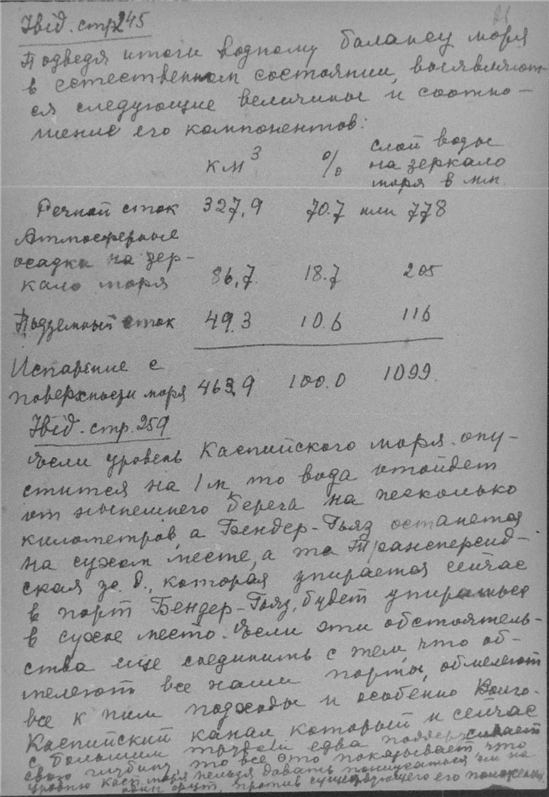 Ibid. стр. 245
Подведя итоги водному балансу моря
в естественном состоянии, выявляют-
ся следующие величины и соотно-
шение его компонентов:
км³ % слой воды
на зеркало
моря в мм.
Речной сток 327,9 70.7 или 778
Атмосферные
осадки на зер-
кало моря 86,7. 18.7 205
Подземный сток 49.3 10.6 116
Испарение с
поверхности моря 463,9 100.0 1099.
Ibid. стр. 259
Если уровень Каспийского моря опу-
стится на 1 м, то вода отойдет
от нынешнего берега на несколько
километров, а Бендер-Гьяз останется
на сухом месте, а та Трансперсид-
ская ж.д., которая упирается сейчас
в порт Бендер-Гьяз, будет упираться
в сухое место. Если эти обстоятель-
ства еще соединить с тем, что об-
мелеют все наши порты, обмелеют
все к ним подходы и особенно Волго-
Каспийский канал который и сейчас
с большим трудом едва поддерживает
свою глубину, то все это показывает что
уровню Касп. моря нельзя давать понижаться ни на
один фут против существующего его положения